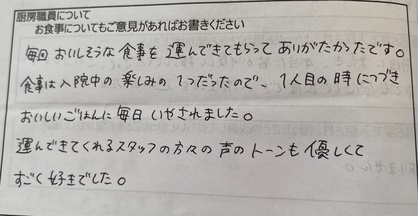 厨房職員について
お食事についてもご意見があればお書きください
毎回おいしそうな食事を運んできてもらってありがたかったです。
食事は入院中の楽しみの1つだったので、1人目の時につづき
おいしいごはんに毎日いやされました。
運んできてくれるスタッフの方々の声のトーンも優しくて
すごく好きでした。